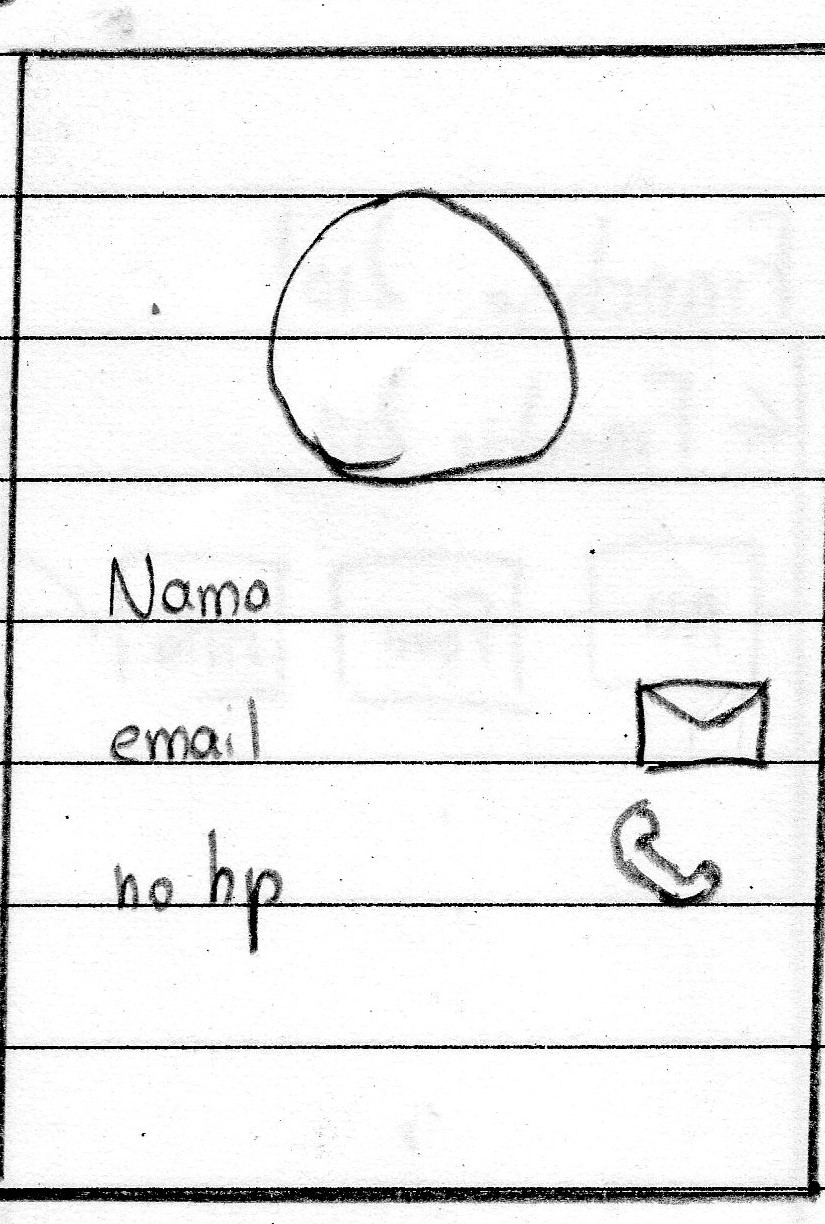 Nama
email
no hp